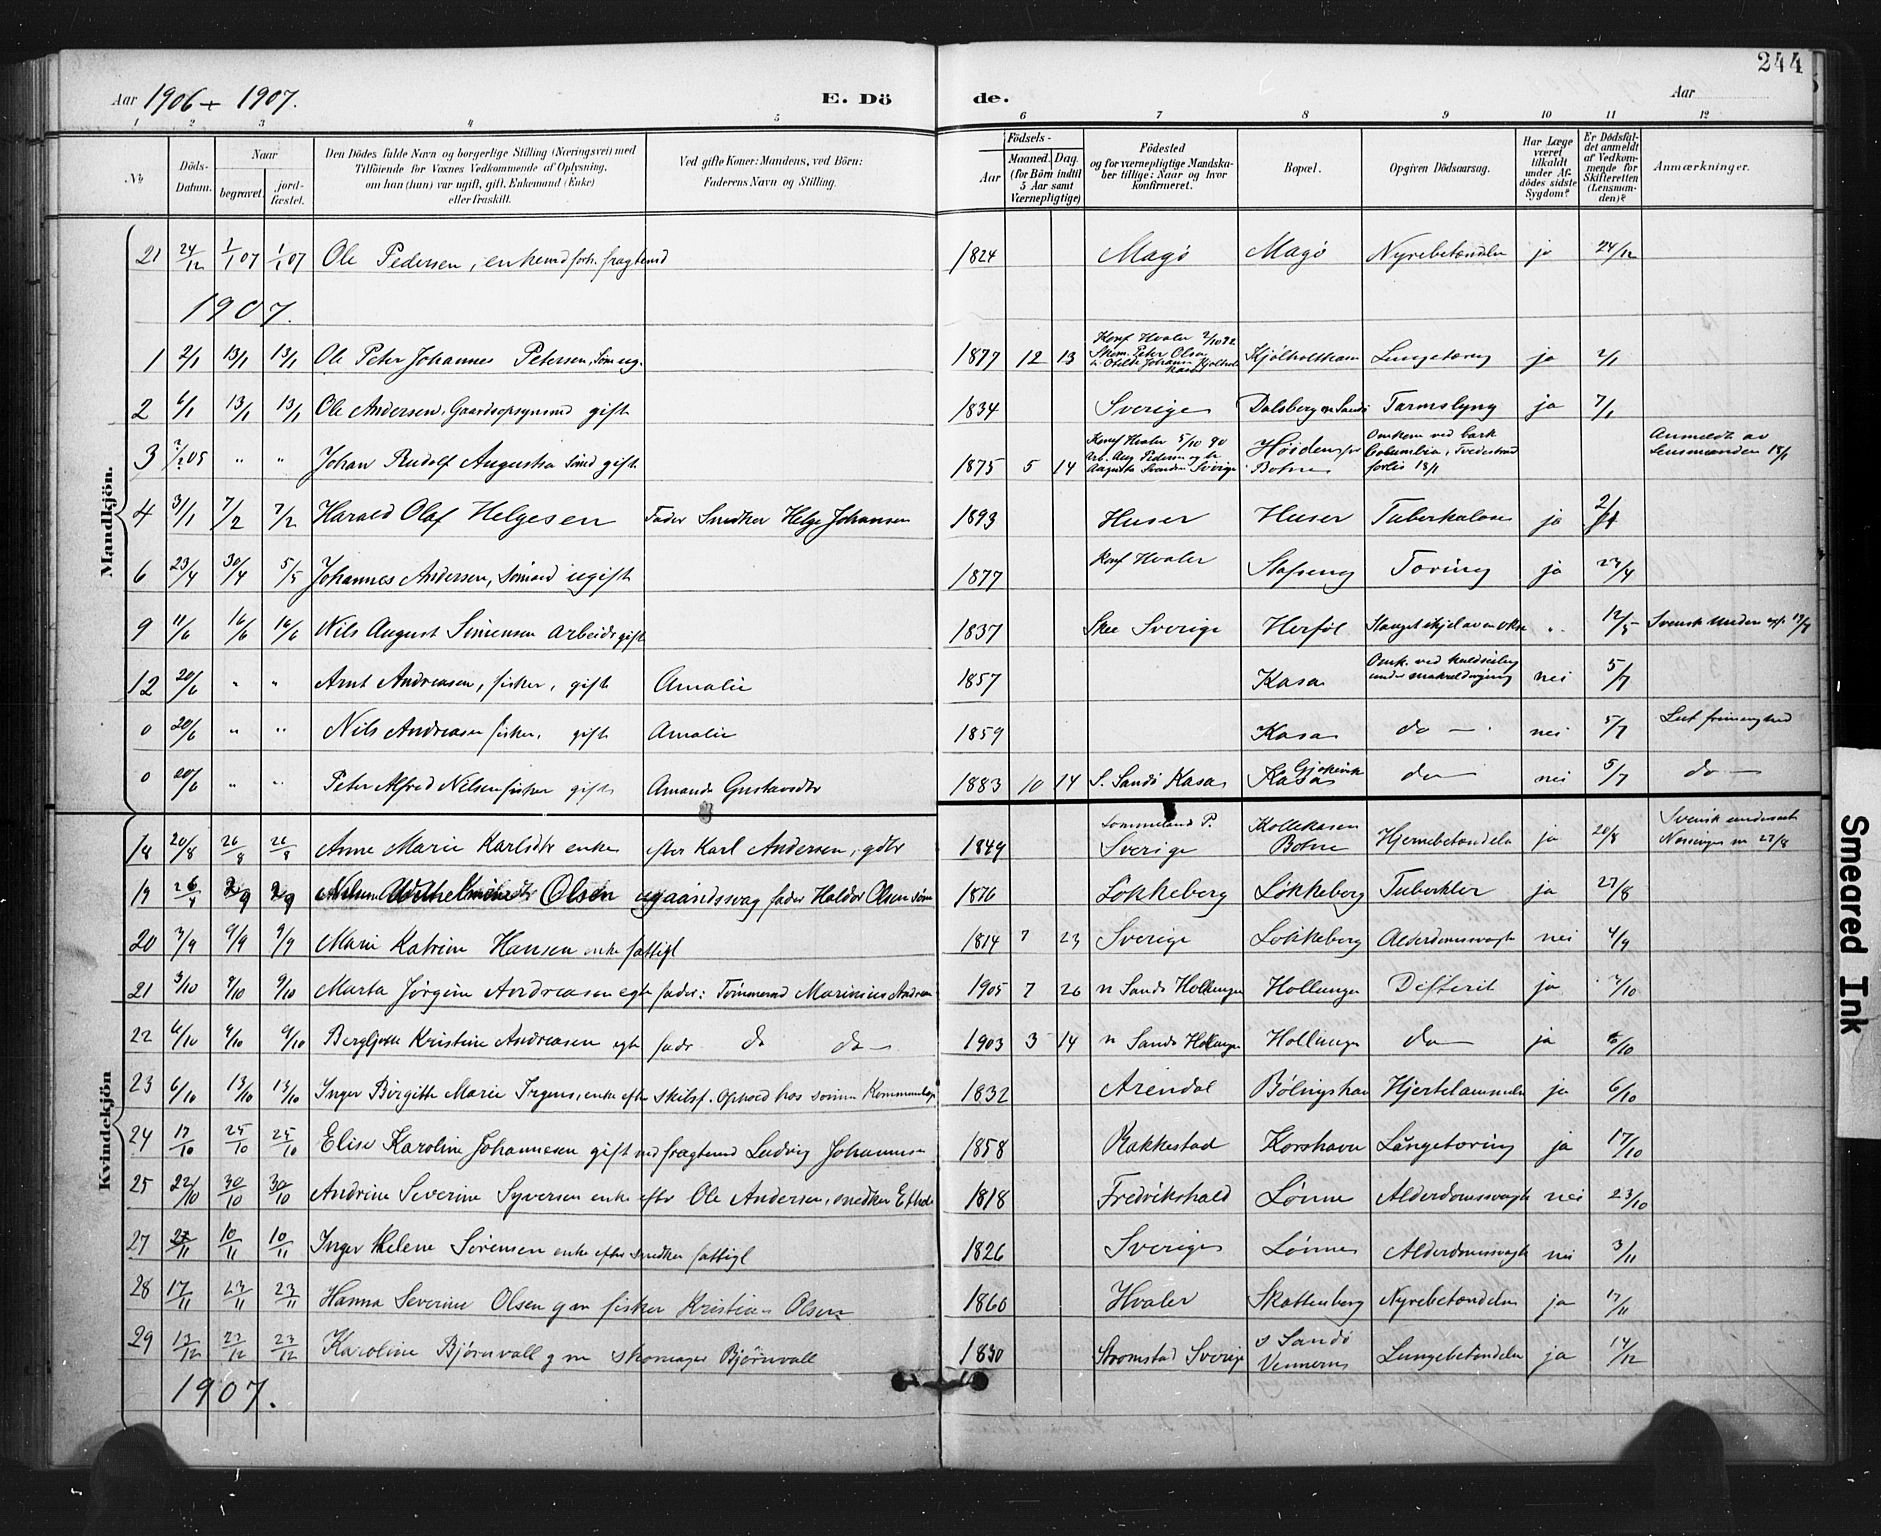 244
Aar 1906 + 1907.
E. Dö de.
Aar
1 2 3 4 5 6 7 8 9 10 11 12
No
Döds-Datum.
Naar
begravet. jordfæstet.
Den Dödes fulde Navn og borgerlige Stilling (Næringsvei) med
Tilföiende for Voxnes Vedkommende af Oplysning,
om han (hun) var ugift, gift, Enkemand (Enke)
eller fraskilt.
Ved gifte Koner: Mandens, ved Börn:
Faderens Navn og Stilling.
Födsels-
Aar
Maaned. Dag.
(for Börn indtil
5 Aar samt
Værnepligtige)
Födested
og for værnepligtige Mandskaber tillige: Naar og hvor
konfirmeret.
Bopæl.
Opgiven Dödsaarsag.
Har Læge
været
tilkaldt
under Afdödes sidste
Sygdom?
Er Dödsfaldet anmeldt
af Vedkommende for
Skifteretten
(Lensmanden)?
Anmærkninger.
Mandkjön.
21 24/12 1/1 07 1/1 07 Ole Pedersen, enkemd forh. fragtemd 1824 Magø Magø Nyrebetændelse ja 24/12
1907.
1 2/1 13/1 13/1 Ole Peter Johannes Petersen, Søm ug. 1877 12 13 Konf Hvaler 2/10 92 Peter Olsen Lungetæring ja 2/1
2 6/1 13/1 13/1 Ole Andersen, Gaardsopsynsmd gift 1834 Sverige Dalsberg n Sandø Tarmslyng ja 7/1
3 05 " " Johan Rudolf Augustsa Sømd gift 1875 5 14 Konf Hvaler 5/10 90 Arb. Aug Pedersen og h. Augusta Sverige Botne Omkom ved bark Columbia, Tvedestrand forlis Anmeldt av Lensmanden 18/1
4 31/1 7/2 7/2 Harald Olaf Helgesen Fader Snedker Helge Johansen 1893 Huser Huser Tuberkulose ja
6 23/4 30/4 5/5 Johannes Andersen, Sømand ugift 1877 Konf Hvaler Stafseng Tæring ja 23/4
9 11/6 16/6 16/6 Nils August Simensen arbeids gift 1837 Skee Sverige Herføl Stanget ihjel av en okse " 12/5 Svensk Unders
12 20/6 " " Arnt Andreasen, fisker, gift Amalie 1857 Kasa Omk. ved kuldseiling under makreldorging nei 5/7
0 20/6 " " Nils Andreasen fisker, gift Amalie 1859 Kasa do — nei 5/7
0 20/6 " " Peter Alfred Nilsen fisker gift Amanda Gustavsdtr 1883 10 14 S. Sandø Kasa Gjøkevik Kasa do — nei 5/7 do —
Kvindekjön
18 20/8 26/8 26/8 Anne Marie Karlsdtr enke efter Karl Andersen, gdbr 1849 Sverige Kollekasen Botne Hjernebetændelse ja 20/8 Svensk undersaat 27/8
19 Olsen fader Haldor Olsen søm 1876 Løkkeberg Løkkeberg Tuberkler ja 27/8
20 3/9 9/9 9/9 Marie Katrine Hansen enke fattigl 1814 7 23 Sverige Løkkeberg Alderdomssvagh nei 4/9
21 3/10 9/10 9/10 Marta Jørgine Andreasen egte fader: Tømmermd Marinius Andreas 1905 7 26 n Sandø Hollungen Hollungen Difterit ja
22 6/10 9/10 9/10 Bergljot Kristine Andreasen egte fadr do do — 1903 3 14 n Sandø Hollungen Hollungen do — ja 6/10
23 6/10 13/10 13/10 Inger Birgitte Marie Irgens, enke efter skibsf. Ophold hos sønnen 1832 Arendal Bølingshavn Hjertelammelse ja 6/10
24 17/10 25/10 25/10 Elise Karoline Johannesen gift md fragtemd Ludvig Johannesen 1858 Rakkestad Korshavn Lungetæring ja 17/10
25 22/10 30/10 30/10 Andrine Severine Syversen enke eftr Ole Andersen, snedker 1818 Fredrikshald Lønne Alderdomssvagh nei 23/10
27 10/11 10/11 Inger Helene Sørensen enke efter snedker fattigl 1826 Sverige Lønne Alderdomssvagh nei 3/11
28 17/11 23/11 23/11 Hanna Severine Olsen g m fisker Kristian Olsen 1860 Hvaler Skattenberg Nyrebetændelse ja 17/11
29 13/12 23/12 23/12 Karoline Bjørnvall g m skomager Bjørnvall 1830 Strømstad Sverige s Sandø Lungebetændelse ja 14/12
1907.
Smeared Ink